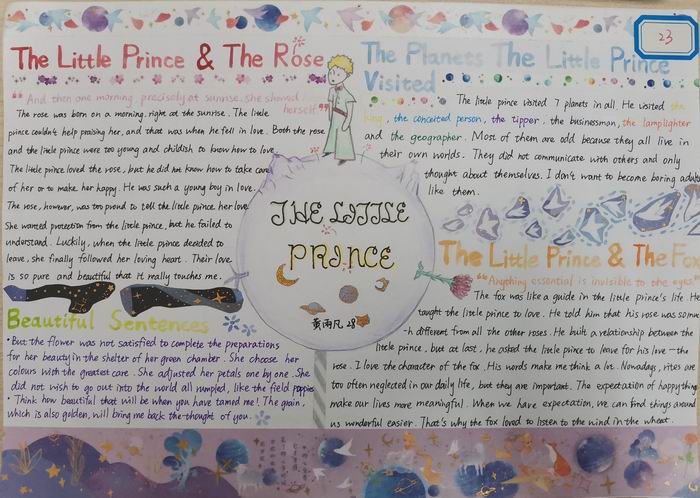 The Little Prince & The Rose
"And then one morning, precisely at sunrise, she showed
herself."
The rose was born on a morning, right at the sunrise. The little
prince couldn't help praising her, and that was when he fell in love. Both the rose
and the little prince were too young and childish to know how to love.
The little prince loved the rose, but he did not know how to take care
of her or to make her happy. He was such a young boy in love.
The rose, however, was too proud to tell the little prince her love.
She wanted protection from the little prince, but he failed to
understand. Luckily, when the little prince decided to
leave, she finally followed her loving heart. Their love
is so pure and beautiful that it really touches me.
Beautiful Sentences
•But the flower was not satisfied to complete the preparations
for her beauty in the shelter of her green chamber. She choose her
colours with the greatest care. She adjusted her petals one by one. She
did not wish to go out into the world all rumpled, like the field poppies.
•Think how beautiful that will be when you have tamed me! The grain,
which is also golden, will bring me back the thought of you.
THE LITTLE
PRINCE
黄雨凡 28
23
The Planets The Little Prince
Visited
The little prince visited 7 planets in all. He visited the
king, the conceited person, the tipper, the businessman, the lamplighter
and the geographer. Most of them are odd because they all live in
their own worlds. They did not communicate with others and only
thought about themselves. I don't want to become boring adults
like them.
The Little Prince & The Fox
"Anything essential is invisible to the eyes"
The fox was like a guide in the little prince's life. He
taught the little prince to love. He told him that his rose was so muc
-h different from all the other roses. He built a relationship between the
little prince, but at last, he asked the little prince to leave for his love — the
rose. I love the character of the fox. His words make me think a lot. Nowadays, rites are
too often neglected in our daily life, but they are important. The expectation of happy things
make our lives more meaningful. When we have expectation, we can find things around
us wonderful easier. That's why the fox loved to listen to the wind in the wheat.